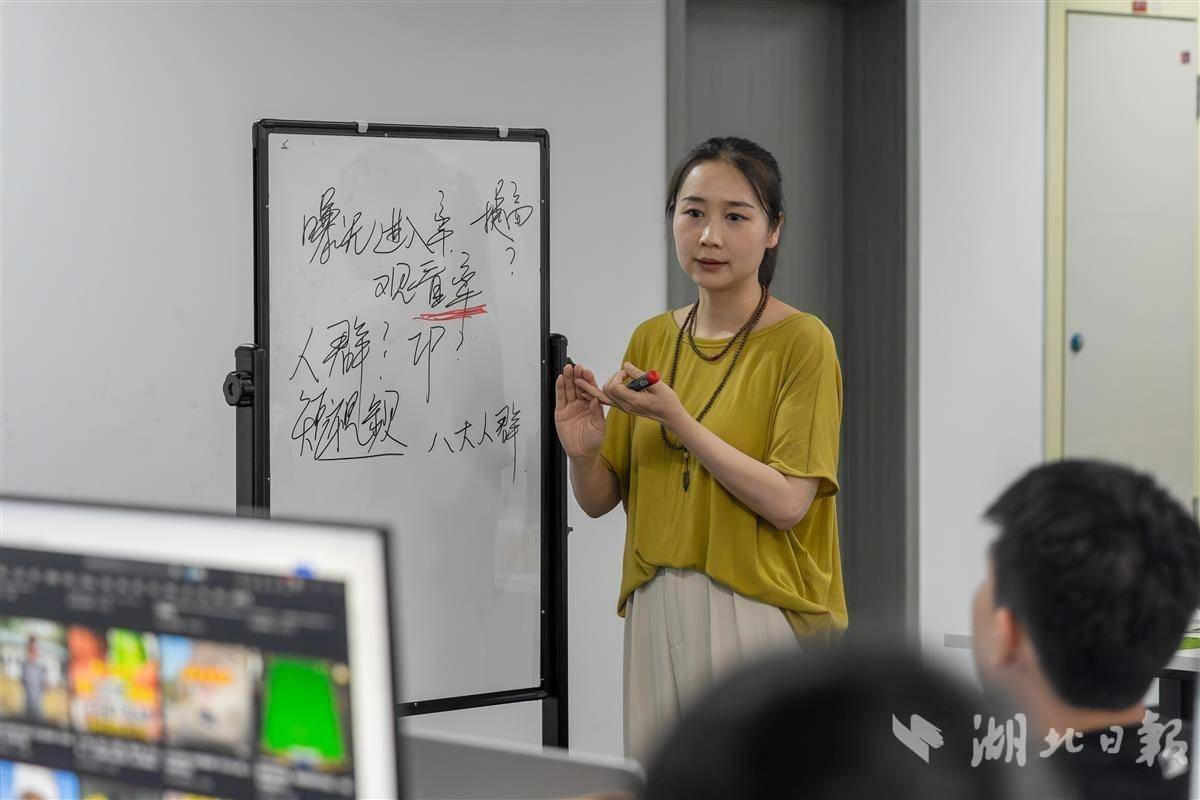 曝光进入率 提高?
观看率
人群? 即?
短视频 八大人群
湖北日报